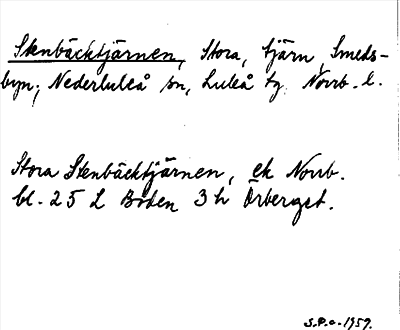 Stenbäcktjärnen, Stora, tjärn, Smeds-
byn, Nederluleå sn, Luleå tg. Norrb. l.
Stora Stenbäcktjärnen, ek Norrb.
bl. 25 L Boden 3 h Örberget.
S.P.o. 1959.